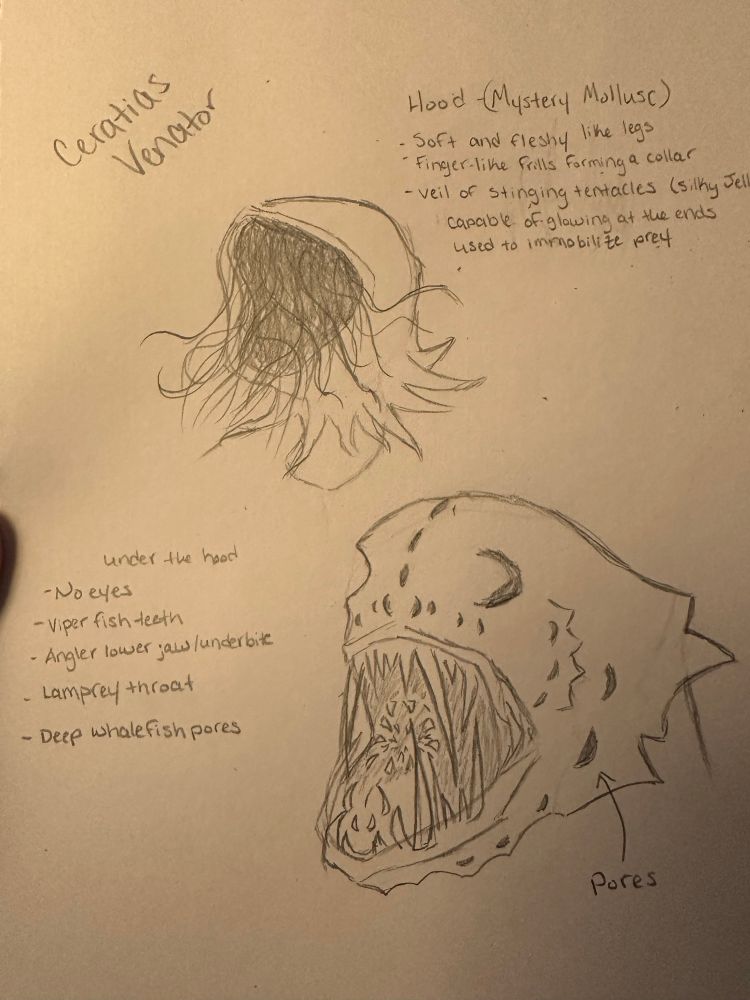 Ceratias
Venator
Hood - (Mystery Mollusc)
- Soft and fleshy like legs
- Finger-like frills forming a collar
- veil of stinging tentacles (silky Jell
capable of glowing at the ends
used to immobilize prey
under the hood
- No eyes
- Viper fish teeth
- Angler lower jaw/underbite
- Lamprey throat
- Deep whalefish pores
Pores